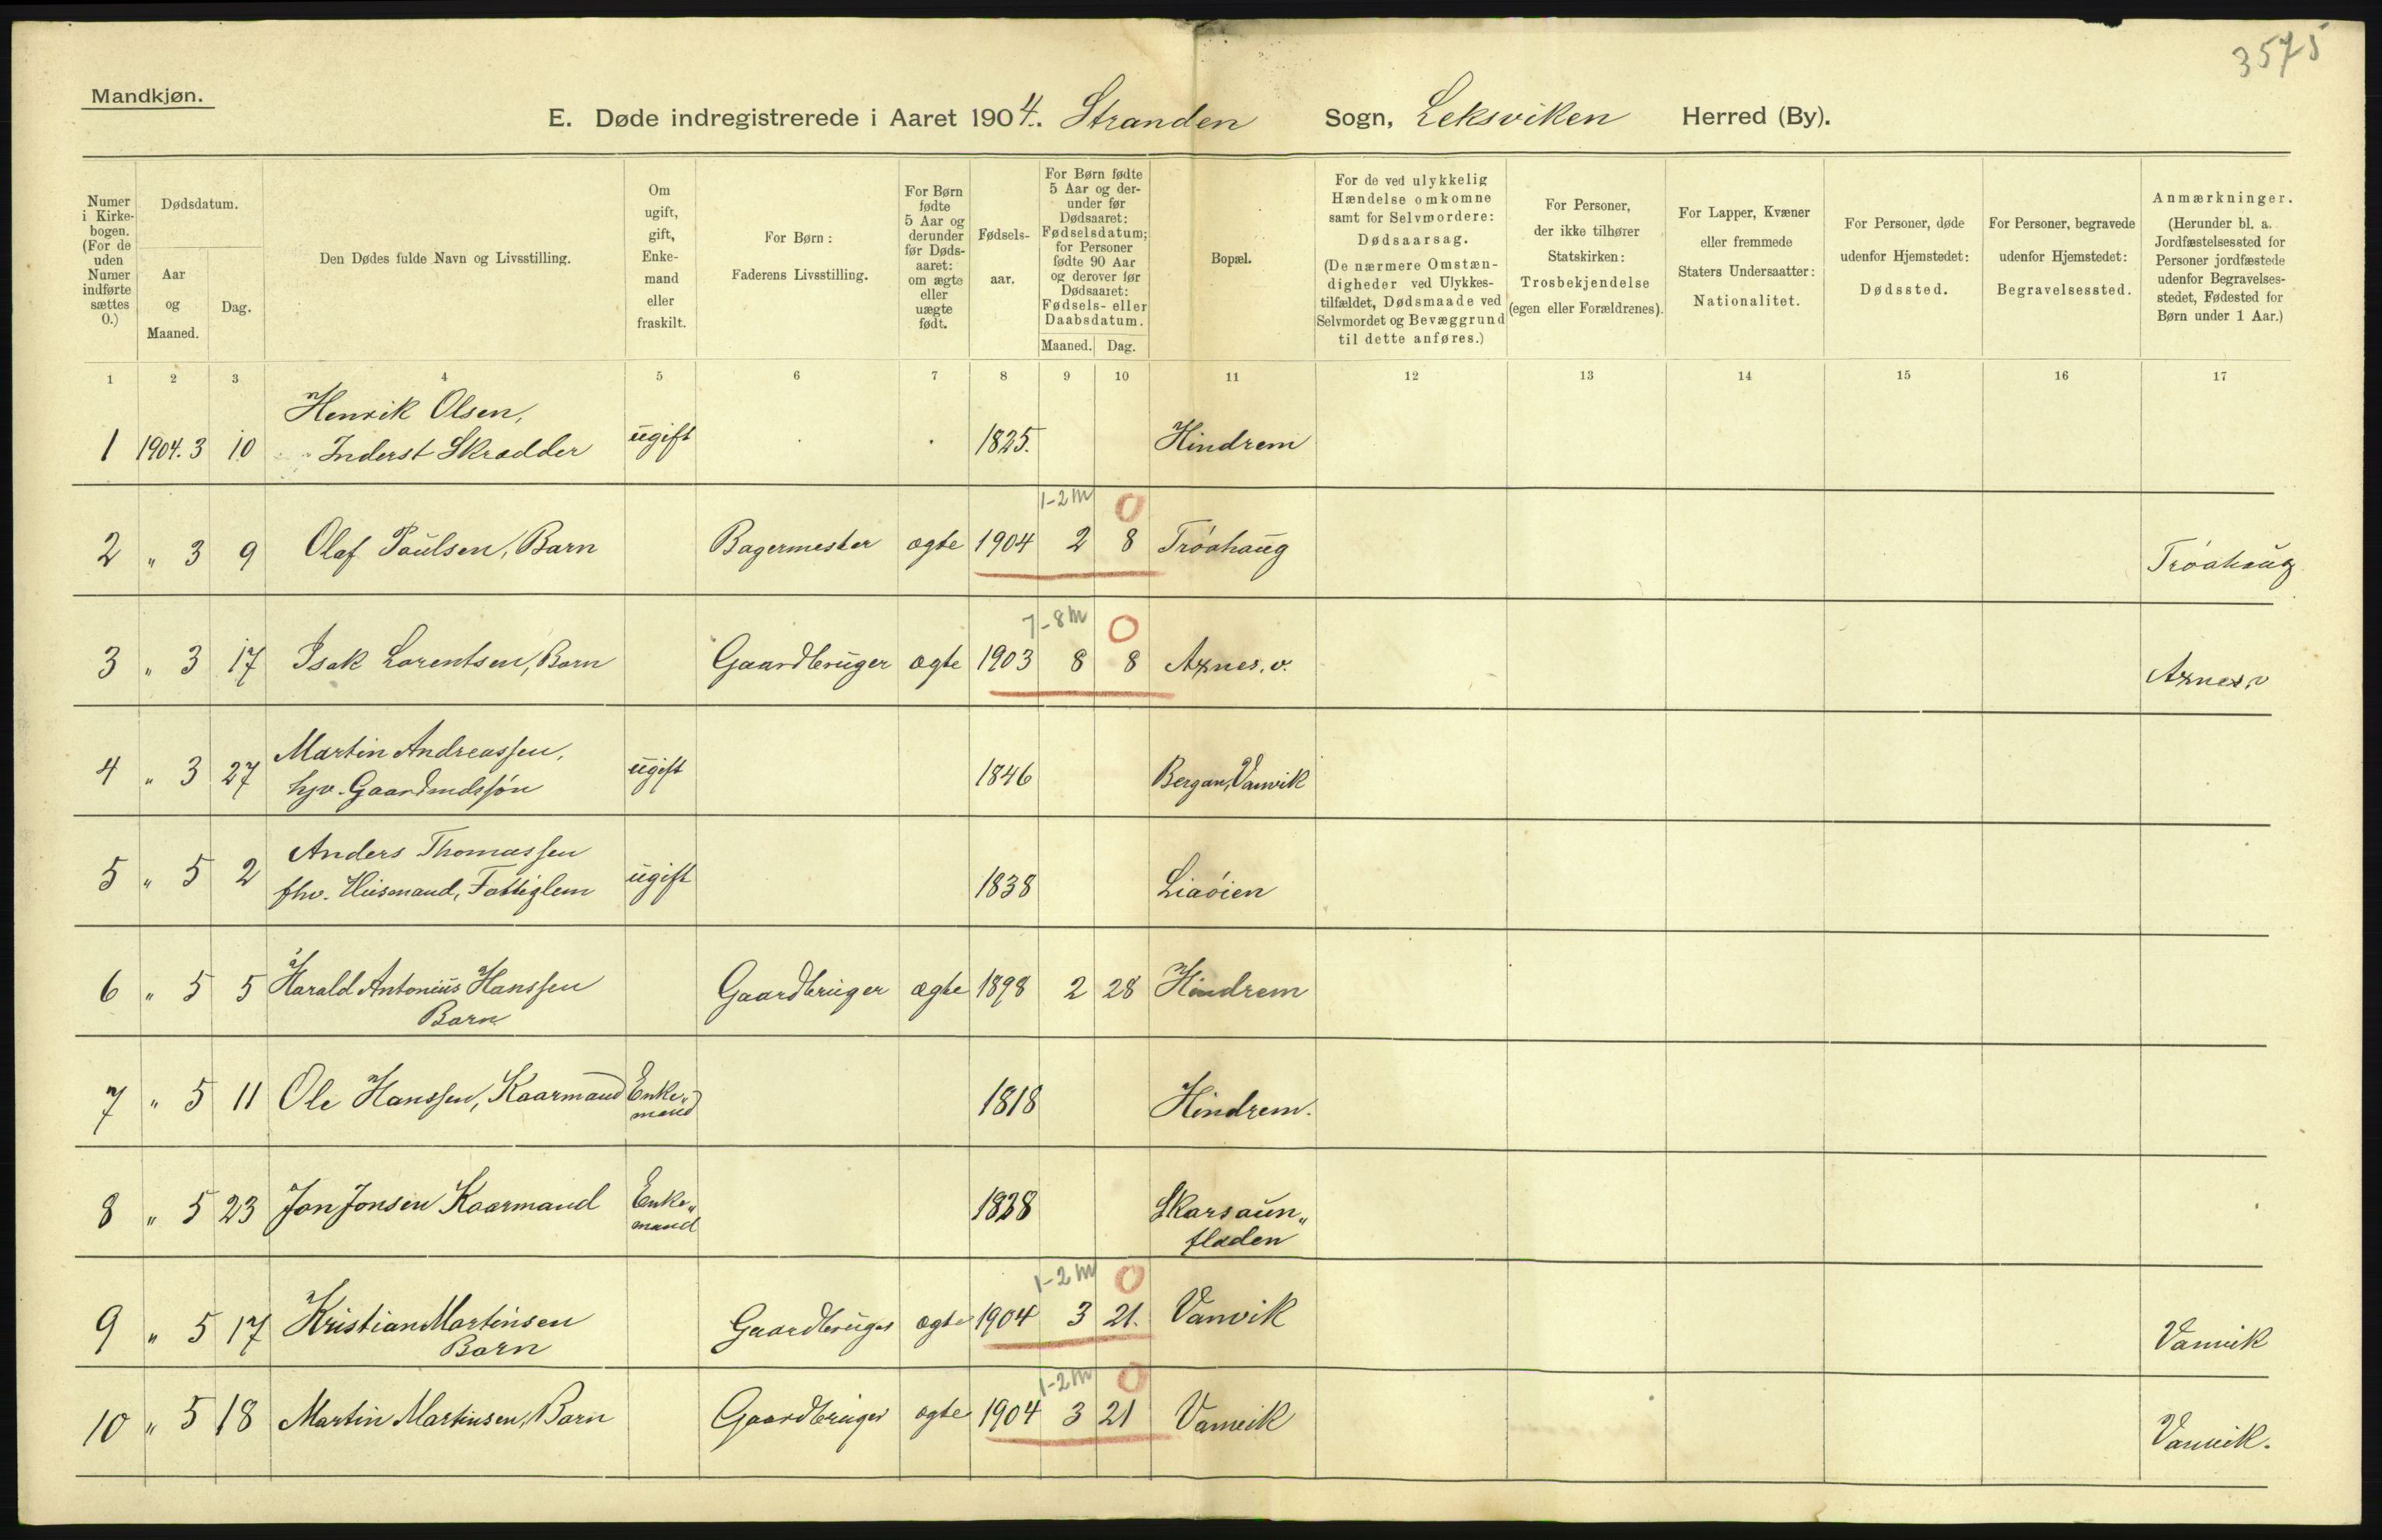 3575
Mandkjøn.
E. Døde indregistrerede i Aaret 1904. Stranden Sogn, Leksviken Herred (By).
Numer i Kirkebogen. (For de uden Numer indførte sættes 0.)
Dødsdatum.
Aar og Maaned.
Dag.
Den Dødes fulde Navn og Livsstilling.
Om ugift, gift, Enkemand eller fraskilt.
For Børn: Faderens Livsstilling.
For Børn fødte 5 Aar og derunder før Dødsaaret: om ægte eller uægte født.
Fødselsaar.
For Børn fødte 5 Aar og derunder før Dødsaaret: Fødselsdatum; for Personer fødte 90 Aar og derover før Dødsaaret: Fødsels- eller Daabsdatum.
Maaned. Dag.
Bopæl.
For de ved ulykkelig Hændelse omkomne samt for Selvmordere: Dødsaarsag. (De nærmere Omstændigheder ved Ulykkestilfældet, Dødsmaade ved Selvmordet og Bevæggrund til dette anføres.)
For Personer, der ikke tilhører Statskirken: Trosbekjendelse (egen eller Forældrenes).
For Lapper, Kvæner eller fremmede Staters Undersaatter: Nationalitet.
For Personer, døde udenfor Hjemstedet: Dødssted.
For Personer, begravede udenfor Hjemstedet: Begravelsessted.
Anmærkninger. (Herunder bl. a. Jordfæstelsessted for Personer jordfæstede udenfor Begravelsesstedet, Fødested for Børn under 1 Aar.)
1 2 3 4 5 6 7 8 9 10 11 12 13 14 15 16 17
Henrik Olsen,
1 1904. 3 10 Inderst Skrædder ugift 1825. Hindrem
1-2 m 0
2 " 3 9 Olaf Paulsen, Barn Bagermester ægte 1904 2 8 Trøahaug Trøahaug
7-8 m 0
3 " 3 17 Isak Lorentsen, Barn Gaardbruger ægte 1903 8 8 Axnes. v. Axnes, v
Martin Andreassen,
4 " 3 27 hjv. Gaardmdssøn ugift 1846 Bergan, Vanvik
Anders Thomassen
5 " 5 2 fhv. Husmand, Fattiglem ugift 1838 Liaøien
6 " 5 5 Harald Antonius Hanssen Gaardbruger ægte 1898 2 28 Hindrem
Barn
7 " 5 11 Ole Hanssen, Kaarmand Enke„ 1818 Hindrem.
mand
8 " 5 23 Jon Jonsen Kaarmand Enke„ 1828 Skarsaun„
mand fladen
1-2 m 0
9 " 5 17 Kristian Martinsen Gaardbruger ægte 1904 3 21. Vanvik Vanvik
Barn
1-2 m 0
10 " 5 18 Martin Martinsen, Barn Gaardbruger ægte 1904 3 21 Vanvik Vanvik.